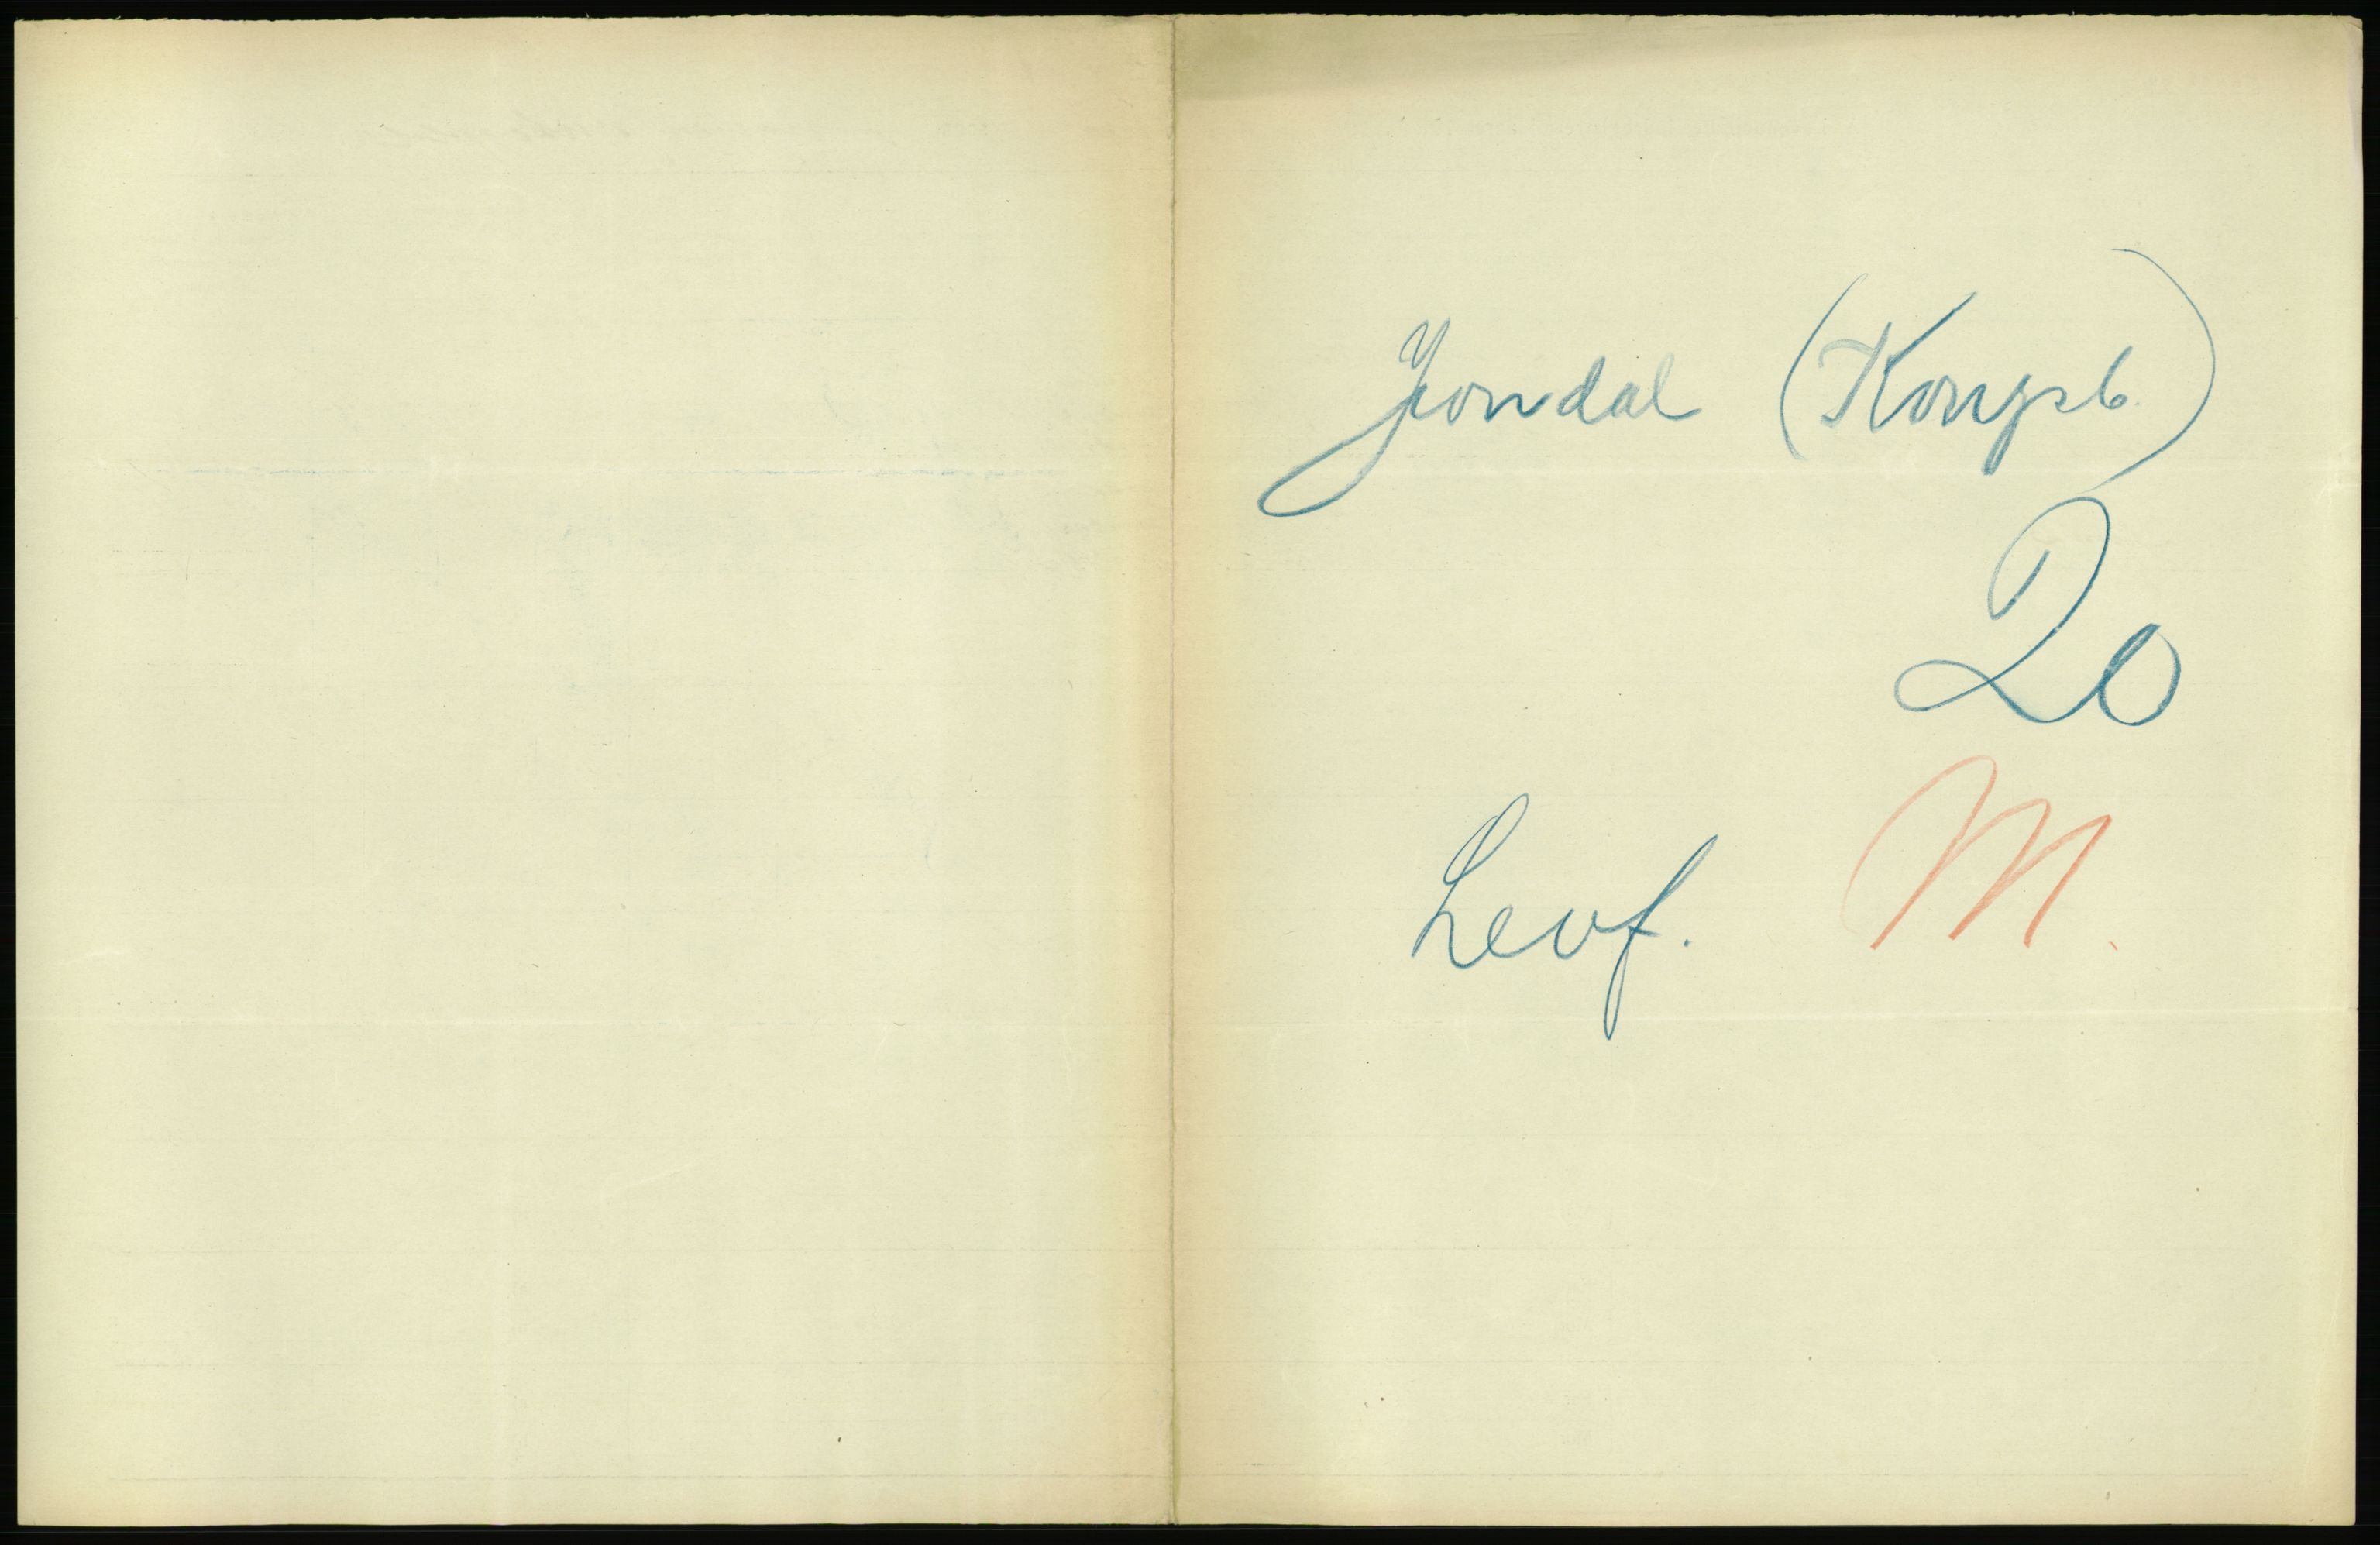 Jondal (Kongsb.)
20
Levf. M.